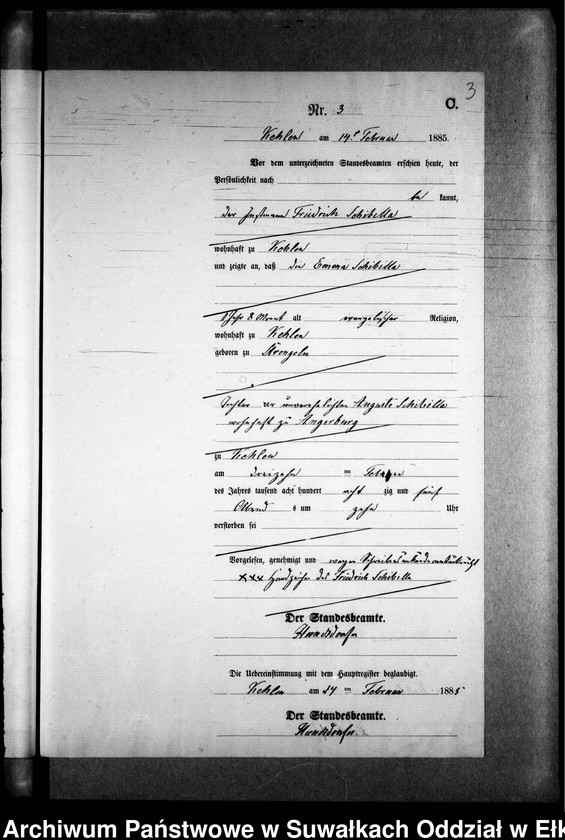 3
C.
Nr. 3
Kehlen am 14. Februar 1885.
Vor dem unterzeichneten Standesbeamten erschien heute, der
Persönlichkeit nach
be kannt,
der Instmann Friedrich Schibilla
wohnhaft zu Kehlen
und zeigte an, daß die Emma Schibilla
1 Jahr 8 Monat alt evangelischer Religion,
wohnhaft zu Kehlen
geboren zu Strengeln
Tochter der unverehelichten Auguste Schibilla
wohnhaft zu Angerburg
zu Kehlen
am dreizehn ten Februar
des Jahres tausend acht hundert acht zig und fünf
Abend s um zehn Uhr
verstorben sei
Vorgelesen, genehmigt und wegen Schreibensunkunde unterkreuzt
xxx Handzeichen des Friedrich Schibilla
Der Standesbeamte.
Die Uebereinstimmung mit dem Hauptregister beglaubigt.
Kehlen am 14 ten Februar 1885
Der Standesbeamte.
Archiwum Państwowe w Suwałkach Oddział w Ełk